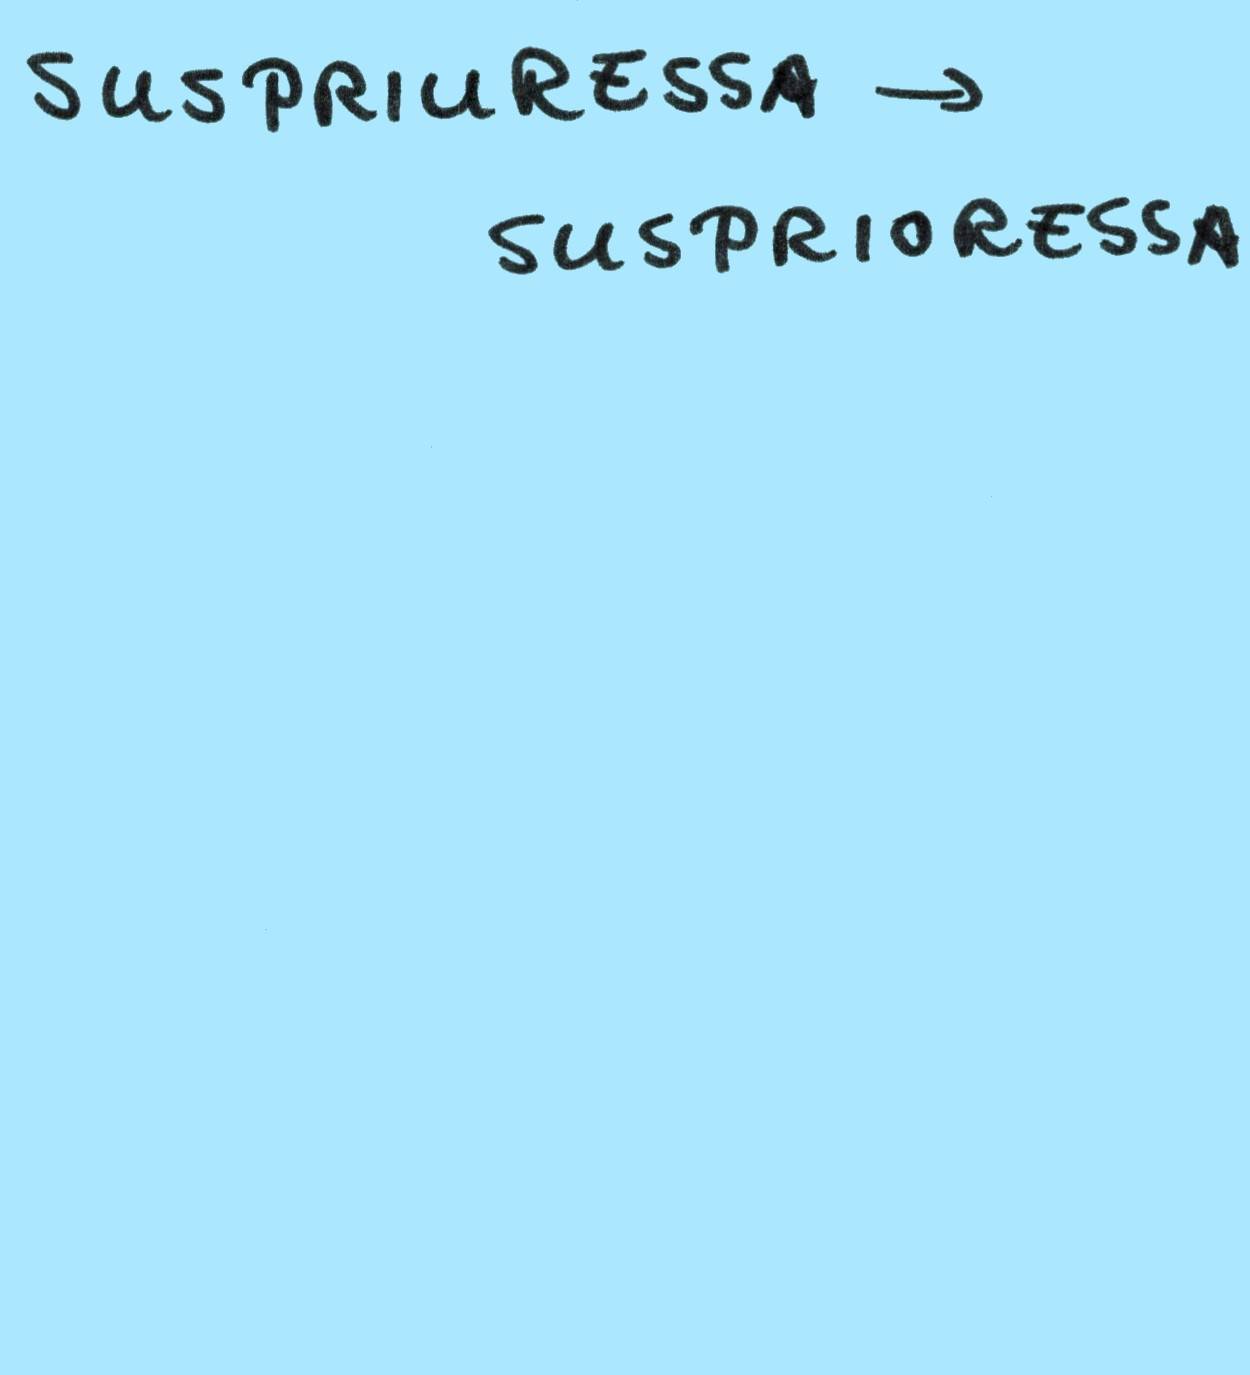 SUSPRIURESSA →
SUSPRIORESSA